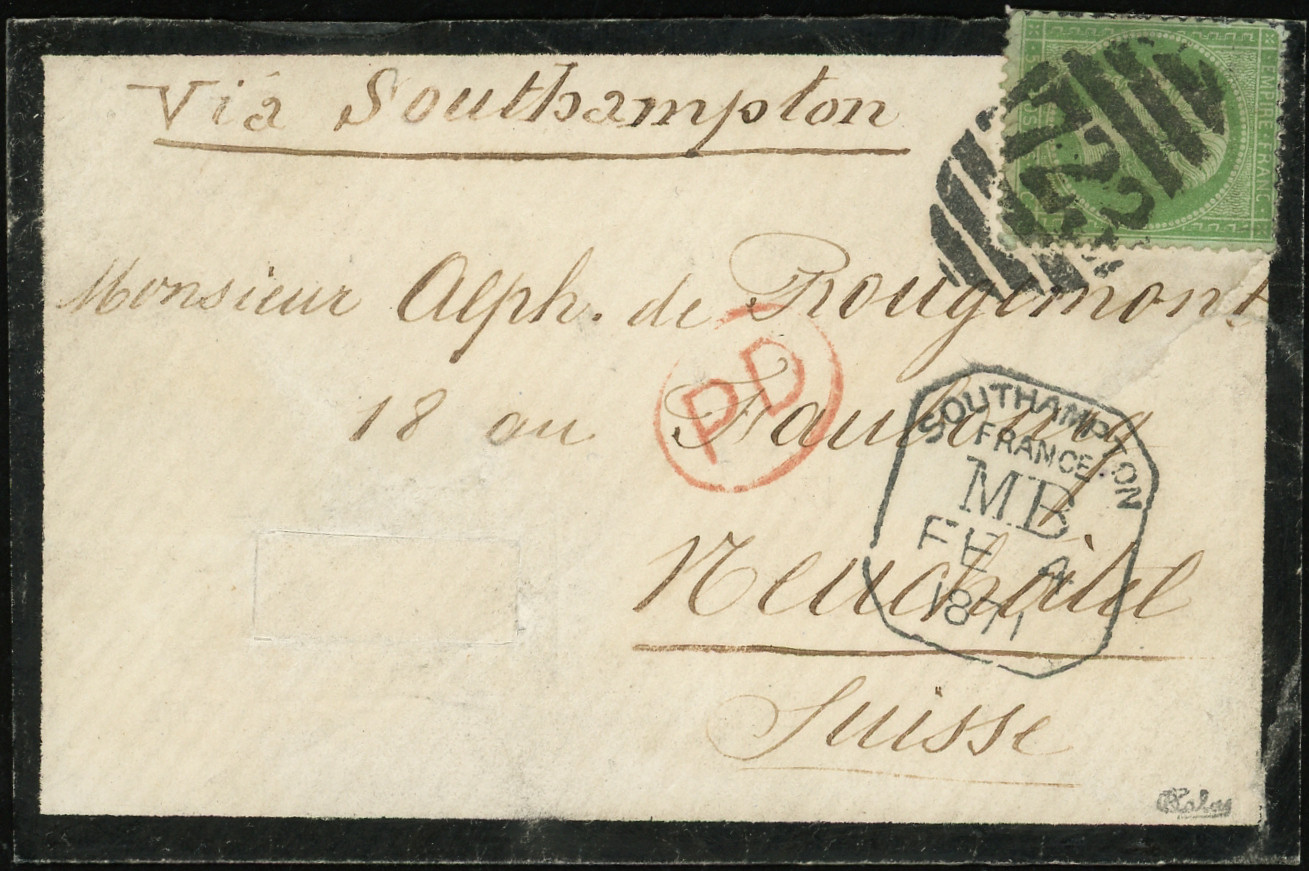 Viá Southampton
EMPIRE FRANC
723
Monsieur Alph. de Rougemont
PD
18 au Faubourg
SOUTHAMPTON
FRANCE.
MB
FE 4
1871
Neuchâtel
Suisse